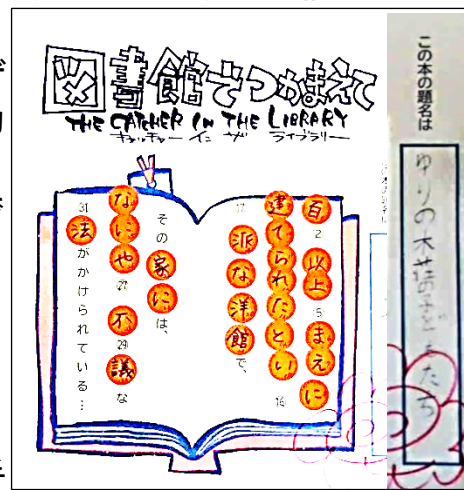 図書館でつかまえて
THE CATCHER IN THE LIBRARY
キャッチャー イン ザ ライブラリー
百2以上5まえに
建てられたとい16
17派な洋館で、
その家には、
なにや27不29議な
31法がかけられている…
この本の題名は
ゆりの木荘の子どもたち